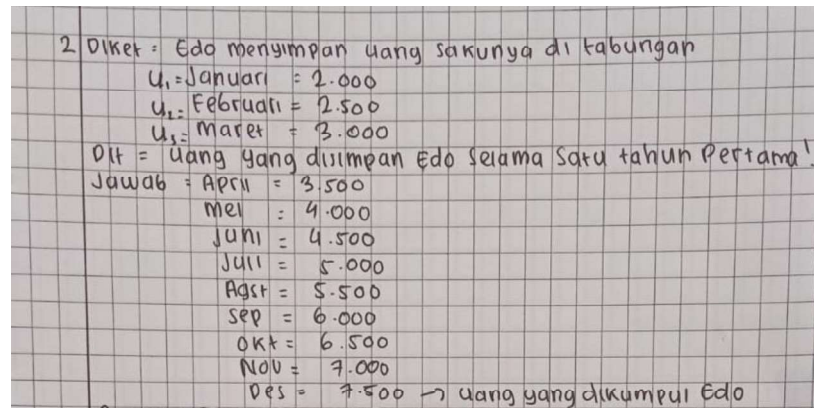 2 Diket = Edo menyimpan uang sakunya di tabungan
U₁ = Januari = 2.000
U₂ = Februari = 2.500
U₃ = Maret = 3.000
Dit = Uang yang disimpan Edo selama satu tahun Pertama!
Jawab = April = 3.500
Mei = 4.000
Juni = 4.500
Juli = 5.000
Agst = 5.500
Sep = 6.000
Okt = 6.500
Nov = 7.000
Des = 7.500 → uang yang dikumpul Edo